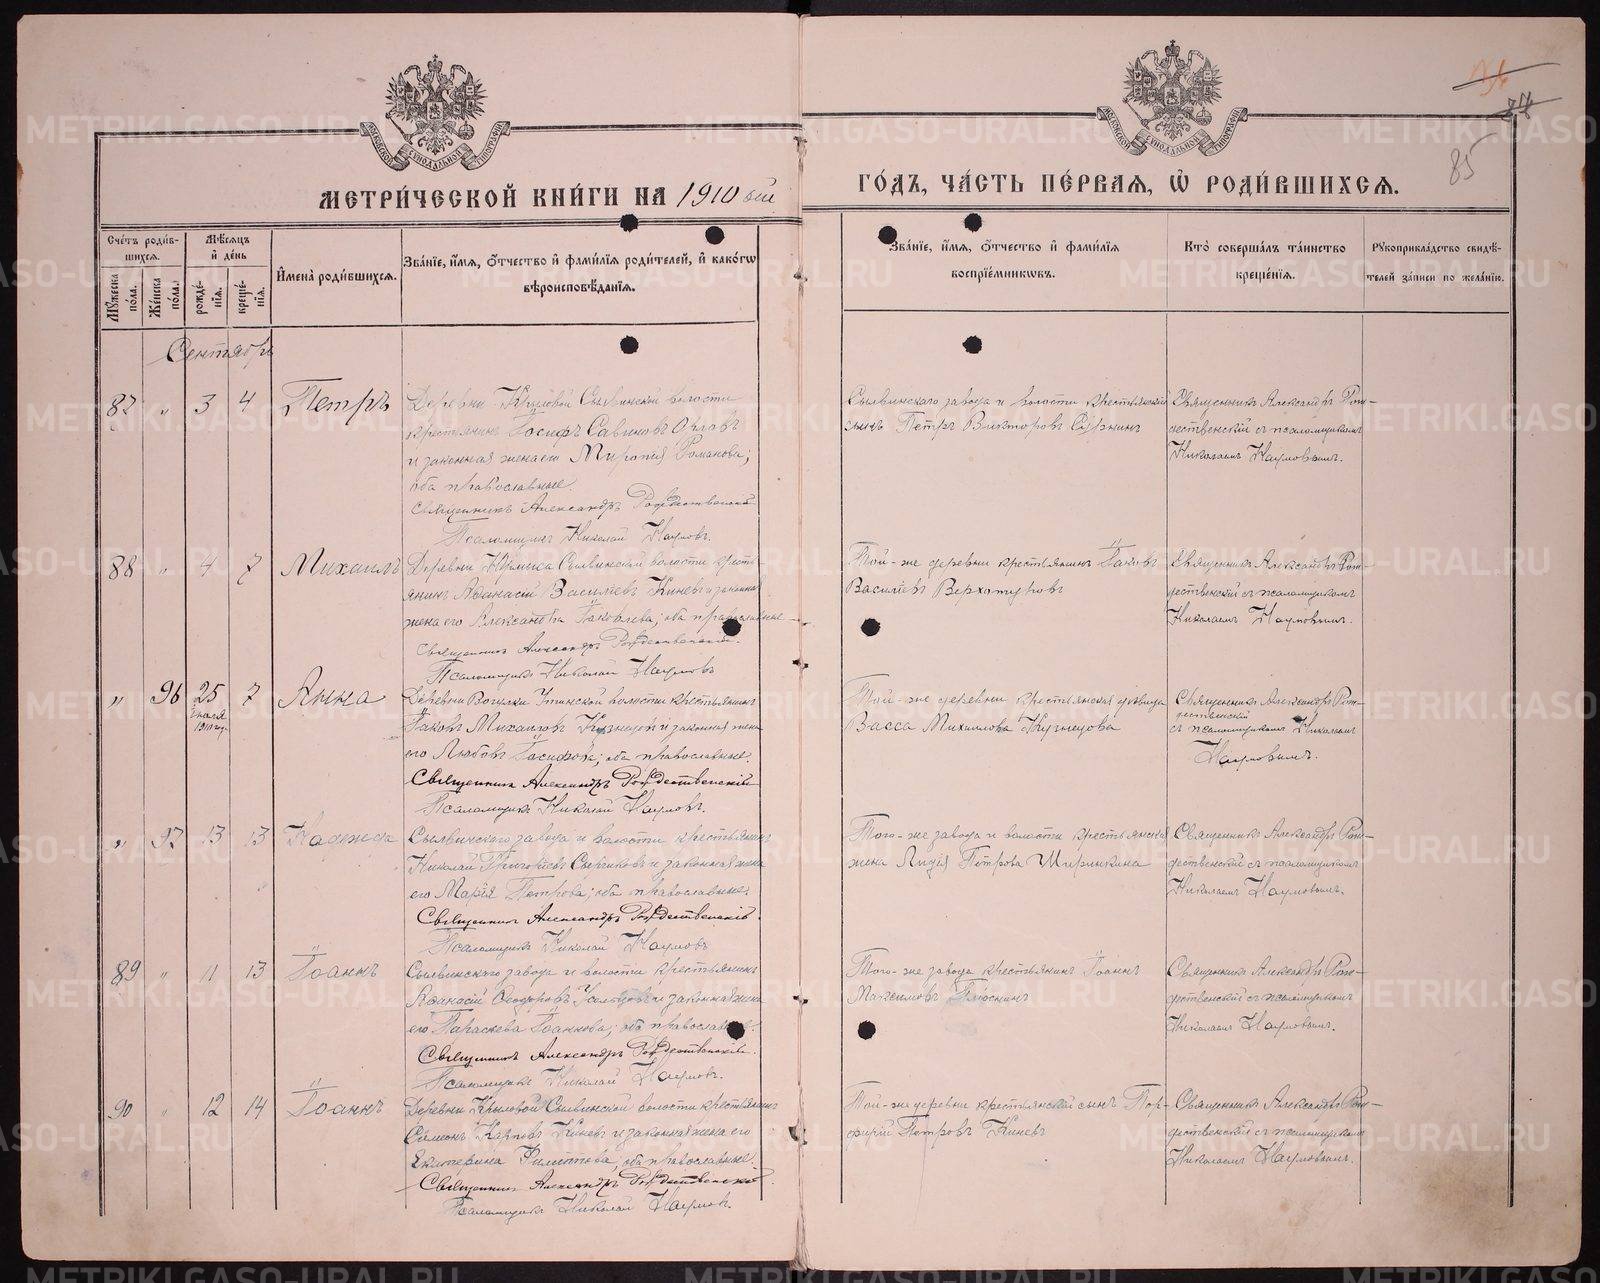 МЕТРИ́ЧЕСКОЙ КНИ́ГИ НА 1910 ый
ГО́ДЪ, ЧА́СТЬ ПЕ́РВАЯ, Ѿ РОДИ́ВШИХСЯ.
85
Сче́тъ роди́вшихся.
Мꙋ́жеска по́ла.
Же́нска по́ла.
Мѣ́сяцъ и҆ де́нь
рожде́нїя.
креще́нїя.
И҆мена̀ роди́вшихся.
Зва́нїе, и҆́мя, ѻ҆́тчество и҆ фами́лїя роди́телей, и҆ како́гѡ
вѣроисповѣ́данїя.
Зва́нїе, и҆́мя, ѻ҆́тчество и҆ фами́лїя
воспрїе́мникѡвъ.
Кто̀ соверша́лъ та́инство
креще́нїя.
Рꙋкоприкла́дство свидѣ́телей за́писи по жела́нїю.
Сентябрь
87 " 3 4 Петръ
Деревни Крыловой Сылвинской волости
крестьянинъ Іосифъ Савиновъ
и законная жена его Миропія Романова;
оба православные.
Священникъ Александръ Рождественскій
Псаломщикъ Николай Наумовъ.
Сылвинского завода и волости крестьянский
сынъ Петръ Викторовъ
Священникъ Александръ Рож-
дественскій съ псаломщикомъ
Николаемъ Наумовымъ.
88 " 4 7 Михаилъ
Деревни Сылвинской волости кресть-
янинъ Аѳанасій Василіевъ Киневъ и законная
жена его Александра Іаковлева; оба православные.
Священникъ Александръ Рождественскій.
Псаломщикъ Николай Наумовъ
Той-же деревни крестьянинъ Іаковъ
Василіевъ Верхотуровъ
Священникъ Александръ Рож-
дественскій съ псаломщикомъ
Николаемъ Наумовымъ.
" 96 25 7 Анна
1910 г.
Деревни Уткинской волости крестьянинъ
Іаковъ Михаиловъ Кузнецовъ и законная жена
его Любовь Іосифова; оба православные.
Священникъ Александръ Рождественскій
Псаломщикъ Николай Наумовъ.
Той-же деревни крестьянская девица
Васса Михаилова Кузнецова
Священникъ Александръ Рож-
дественскій
съ псаломщикомъ Николаемъ
Наумовымъ.
" 97 13 13 Надежда
Сылвинского завода и волости крестьянинъ
Николай Григоріевъ и законная жена
его Марія Петрова; оба православные.
Священникъ Александръ Рождественскій
Псаломщикъ Николай Наумовъ
Того-же завода и волости крестьянская
жена Лидія Петрова Ширинкина
Священникъ Александръ Рож-
дественскій съ псаломщикомъ
Николаемъ Наумовымъ.
89 " 11 13 Іоаннъ
Сылвинского завода и волости крестьянинъ
Аѳанасій Ѳеодоровъ и законная жена
его Параскева Іоаннова; оба православные.
Священникъ Александръ Рождественскій.
Псаломщикъ Николай Наумовъ.
Того-же завода крестьянинъ Іоаннъ
Максимовъ
Священникъ Александръ Рож-
дественскій съ псаломщикомъ
Николаемъ Наумовымъ.
90 " 12 14 Іоаннъ
Деревни Крыловой Сылвинской волости крестьянинъ
Симеонъ Карповъ Киневъ и законная жена его
Екатерина Филиппова; оба православные.
Священникъ Александръ Рождественскій.
Псаломщикъ Николай Наумовъ.
Той-же деревни крестьянский сынъ Пор-
фирій Петровъ Киневъ
Священникъ Александръ Рож-
дественскій съ псаломщикомъ
Николаемъ Наумовымъ.
METRIKI.GASO-URAL.RU